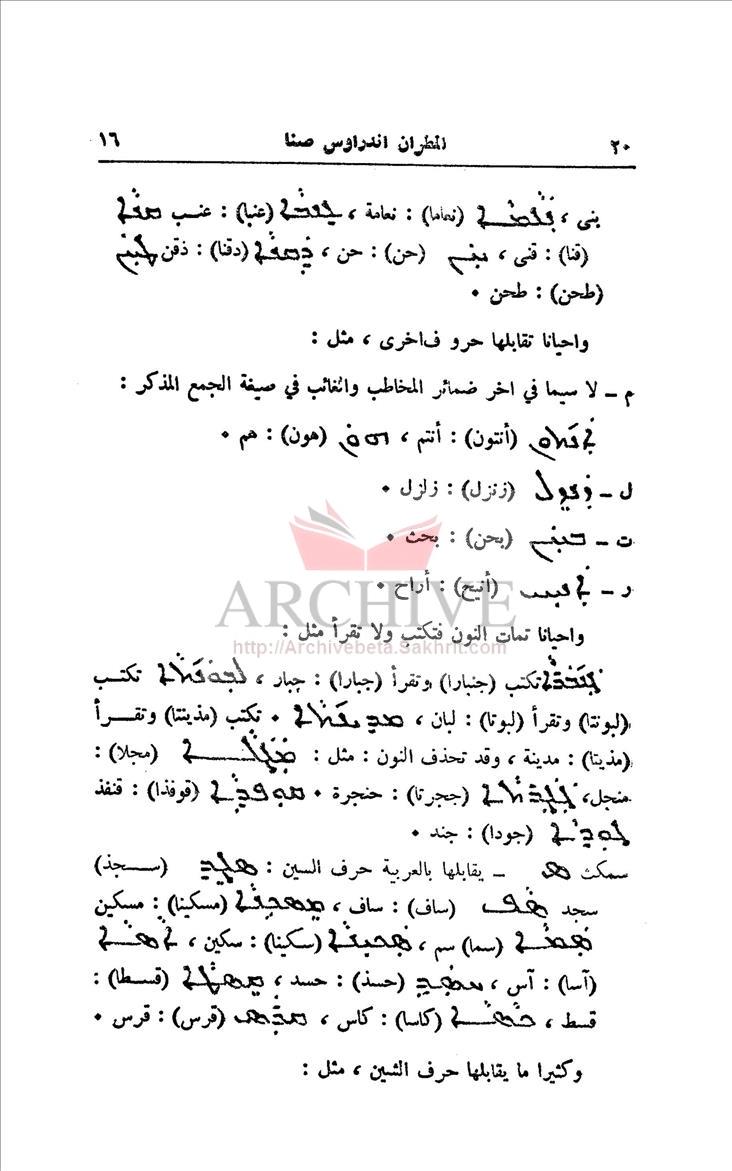 ٢٠ المطران اندراوس صنا ١٦
بنى ، ܢܥܡܐ (نعاما) : نعامة ، ܥܢܒܐ (عنبا) : عنب ܩܢܐ
(قنا) : قنى ، ܚܢ (حن) : حن ، ܕܩܢܐ (دقنا) : ذقن ܛܚܢ
(طحن) : طحن ٠
واحيانا تقابلها حرو ف‌اخرى ، مثل :
م – لا سيما في اخر ضمائر المخاطب والغائب في صيغة الجمع المذكر :
ܐܢܬܘܢ (أنتون) : أنتم ، ܗܘܢ (هون) : هم ٠
ل – ܙܢܙܠ (زنزل) : زلزل ٠
ت – ܒܚܢ (بحن) : بحث ٠
ر – ܐܢܝܚ (أنيح) : أراح ٠
واحيانا تمات النون فتكتب ولا تقرأ مثل :
ܓܢܒܪܐ تكتب (جنبارا) وتقرأ (جبارا) : جبار ، ܠܒܘܢܬܐ تكتب
(لبونتا) وتقرأ (لبوتا) : لبان ، ܡܕܝܢܬܐ ٠ تكتب (مذينتا) وتقرأ
(مذيتا) : مدينة ، وقد تحذف النون : مثل : ܡܓܠܐ (مجلا) :
منجل، ܓܓܪܬܐ (ججرتا) : حنجرة ٠ ܩܘܦܕܐ (قوفذا) : قنفذ
ܓܘܕܐ (جودا) : جند ٠
سمكث ܣ – يقابلها بالعربية حرف السين : ܣܓܕ (سجذ)
سجد ܣܦ (ساف) : ساف ، ܡܣܟܢܐ (مسكينا) : مسكين
ܣܡܐ (سما) سم ، ܣܟܝܢܐ (سكينا) : سكين ، ܐܣܐ
(آسا) : آس ، ܚܣܕ (حسذ) : حسد ، ܩܣܛܐ (قسطا) :
قسط ، ܟܣܐ (كاسا) : كاس ، ܩܪܣ (قرس) : قرس ٠
وكثيرا ما يقابلها حرف الشين ، مثل :
ARCHIVE
http://Archivebeta.Sakhrit.com